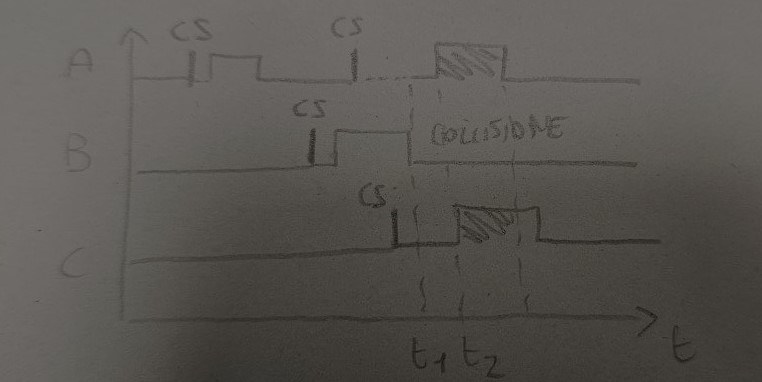 CS CS
A
CS
B COLLISIONE
CS
C
t1 t2 t